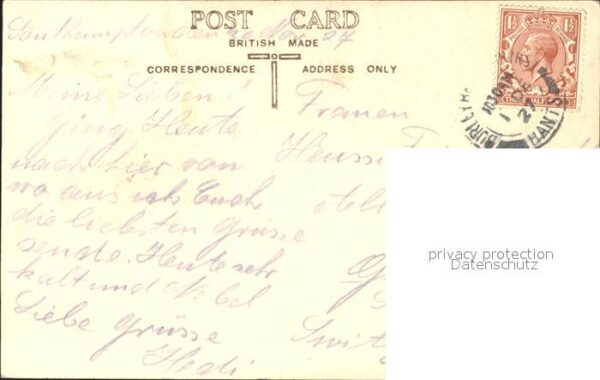 POST CARD
BRITISH MADE
CORRESPONDENCE
ADDRESS ONLY
1½ 1½
10 30 AM
1 DE
27
HANTS
Southampton den Nov. 27
Meine Lieben!
ging Heute
nach hier von
wo aus ich Euch
die liebsten Grüsse
sende. Heute sehr
kalt und Nebel
Liebe Grüsse
Hedi
Frauen
Heussi
privacy protection
Datenschutz